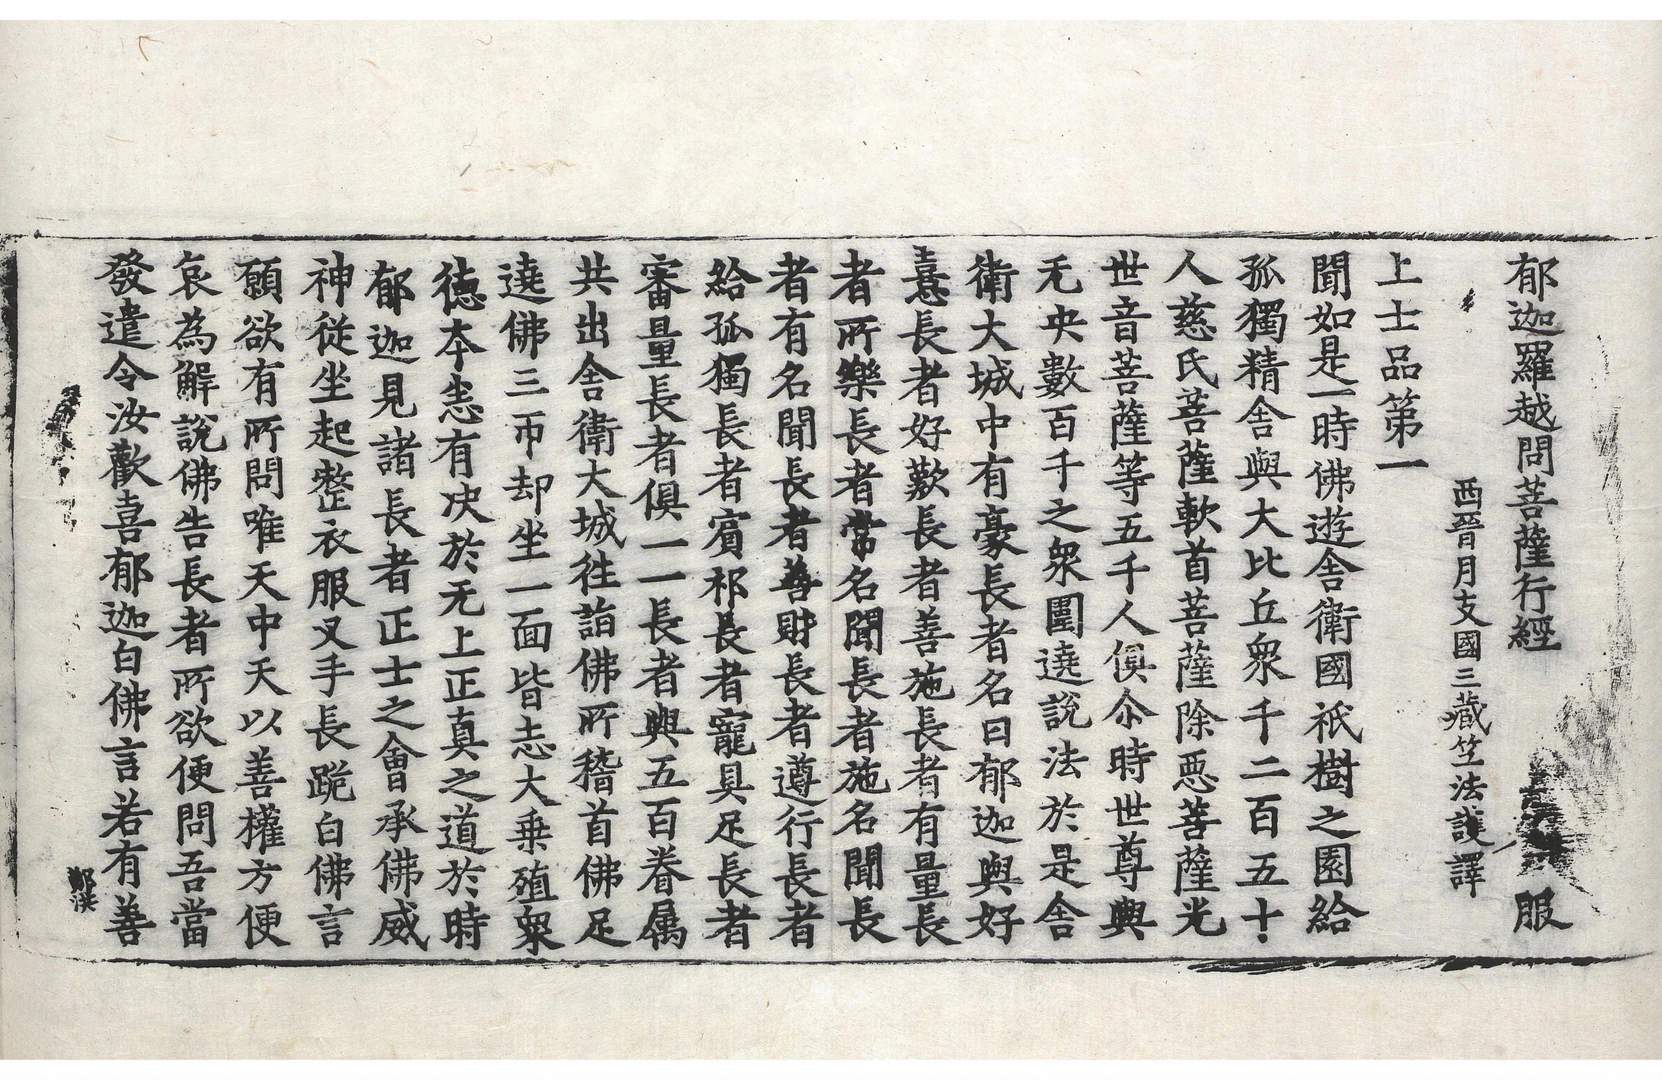 郁迦羅越問菩薩行經　服
西晉月支國三藏竺法護譯
上士品第一
聞如是一時佛遊舍衛國祇樹之園給
孤獨精舍與大比丘衆千二百五十
人慈氏菩薩軟首菩薩除惡菩薩光
世音菩薩等五千人俱尒時世尊與
无央數百千之衆圍遶說法於是舍
衛大城中有豪長者名曰郁迦與好
憙長者好歎長者善施長者有量長
者所樂長者常名聞長者施名聞長
者有名聞長者善財長者遵行長者
給孤獨長者賓祁長者寵具足長者
審量長者俱一一長者與五百眷属
共出舍衛大城往詣佛所稽首佛足
遶佛三帀却坐一面皆志大乗殖衆
德夲恙有决於无上正真之道於時
郁迦見諸長者正士之會承佛威
神從坐起整衣服叉手長跪白佛言
願欲有所問唯天中天以善權方便
哀為解說佛告長者所欲便問吾當
發遣令汝歡喜郁迦白佛言若有善